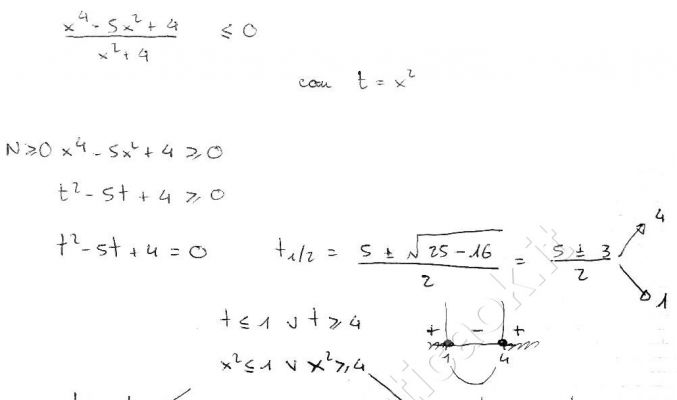 x⁴ - 5x² + 4 / x² + 4 ≤ 0
con t = x²
N ≥ 0 x⁴ - 5x² + 4 ≥ 0
t² - 5t + 4 ≥ 0
t² - 5t + 4 = 0 t₁/₂ = (5 ± √(25 - 16)) / 2 = (5 ± 3) / 2 4 1
t ≤ 1 ∨ t ≥ 4 + - +
x² ≤ 1 ∨ x² ≥ 4 1 4